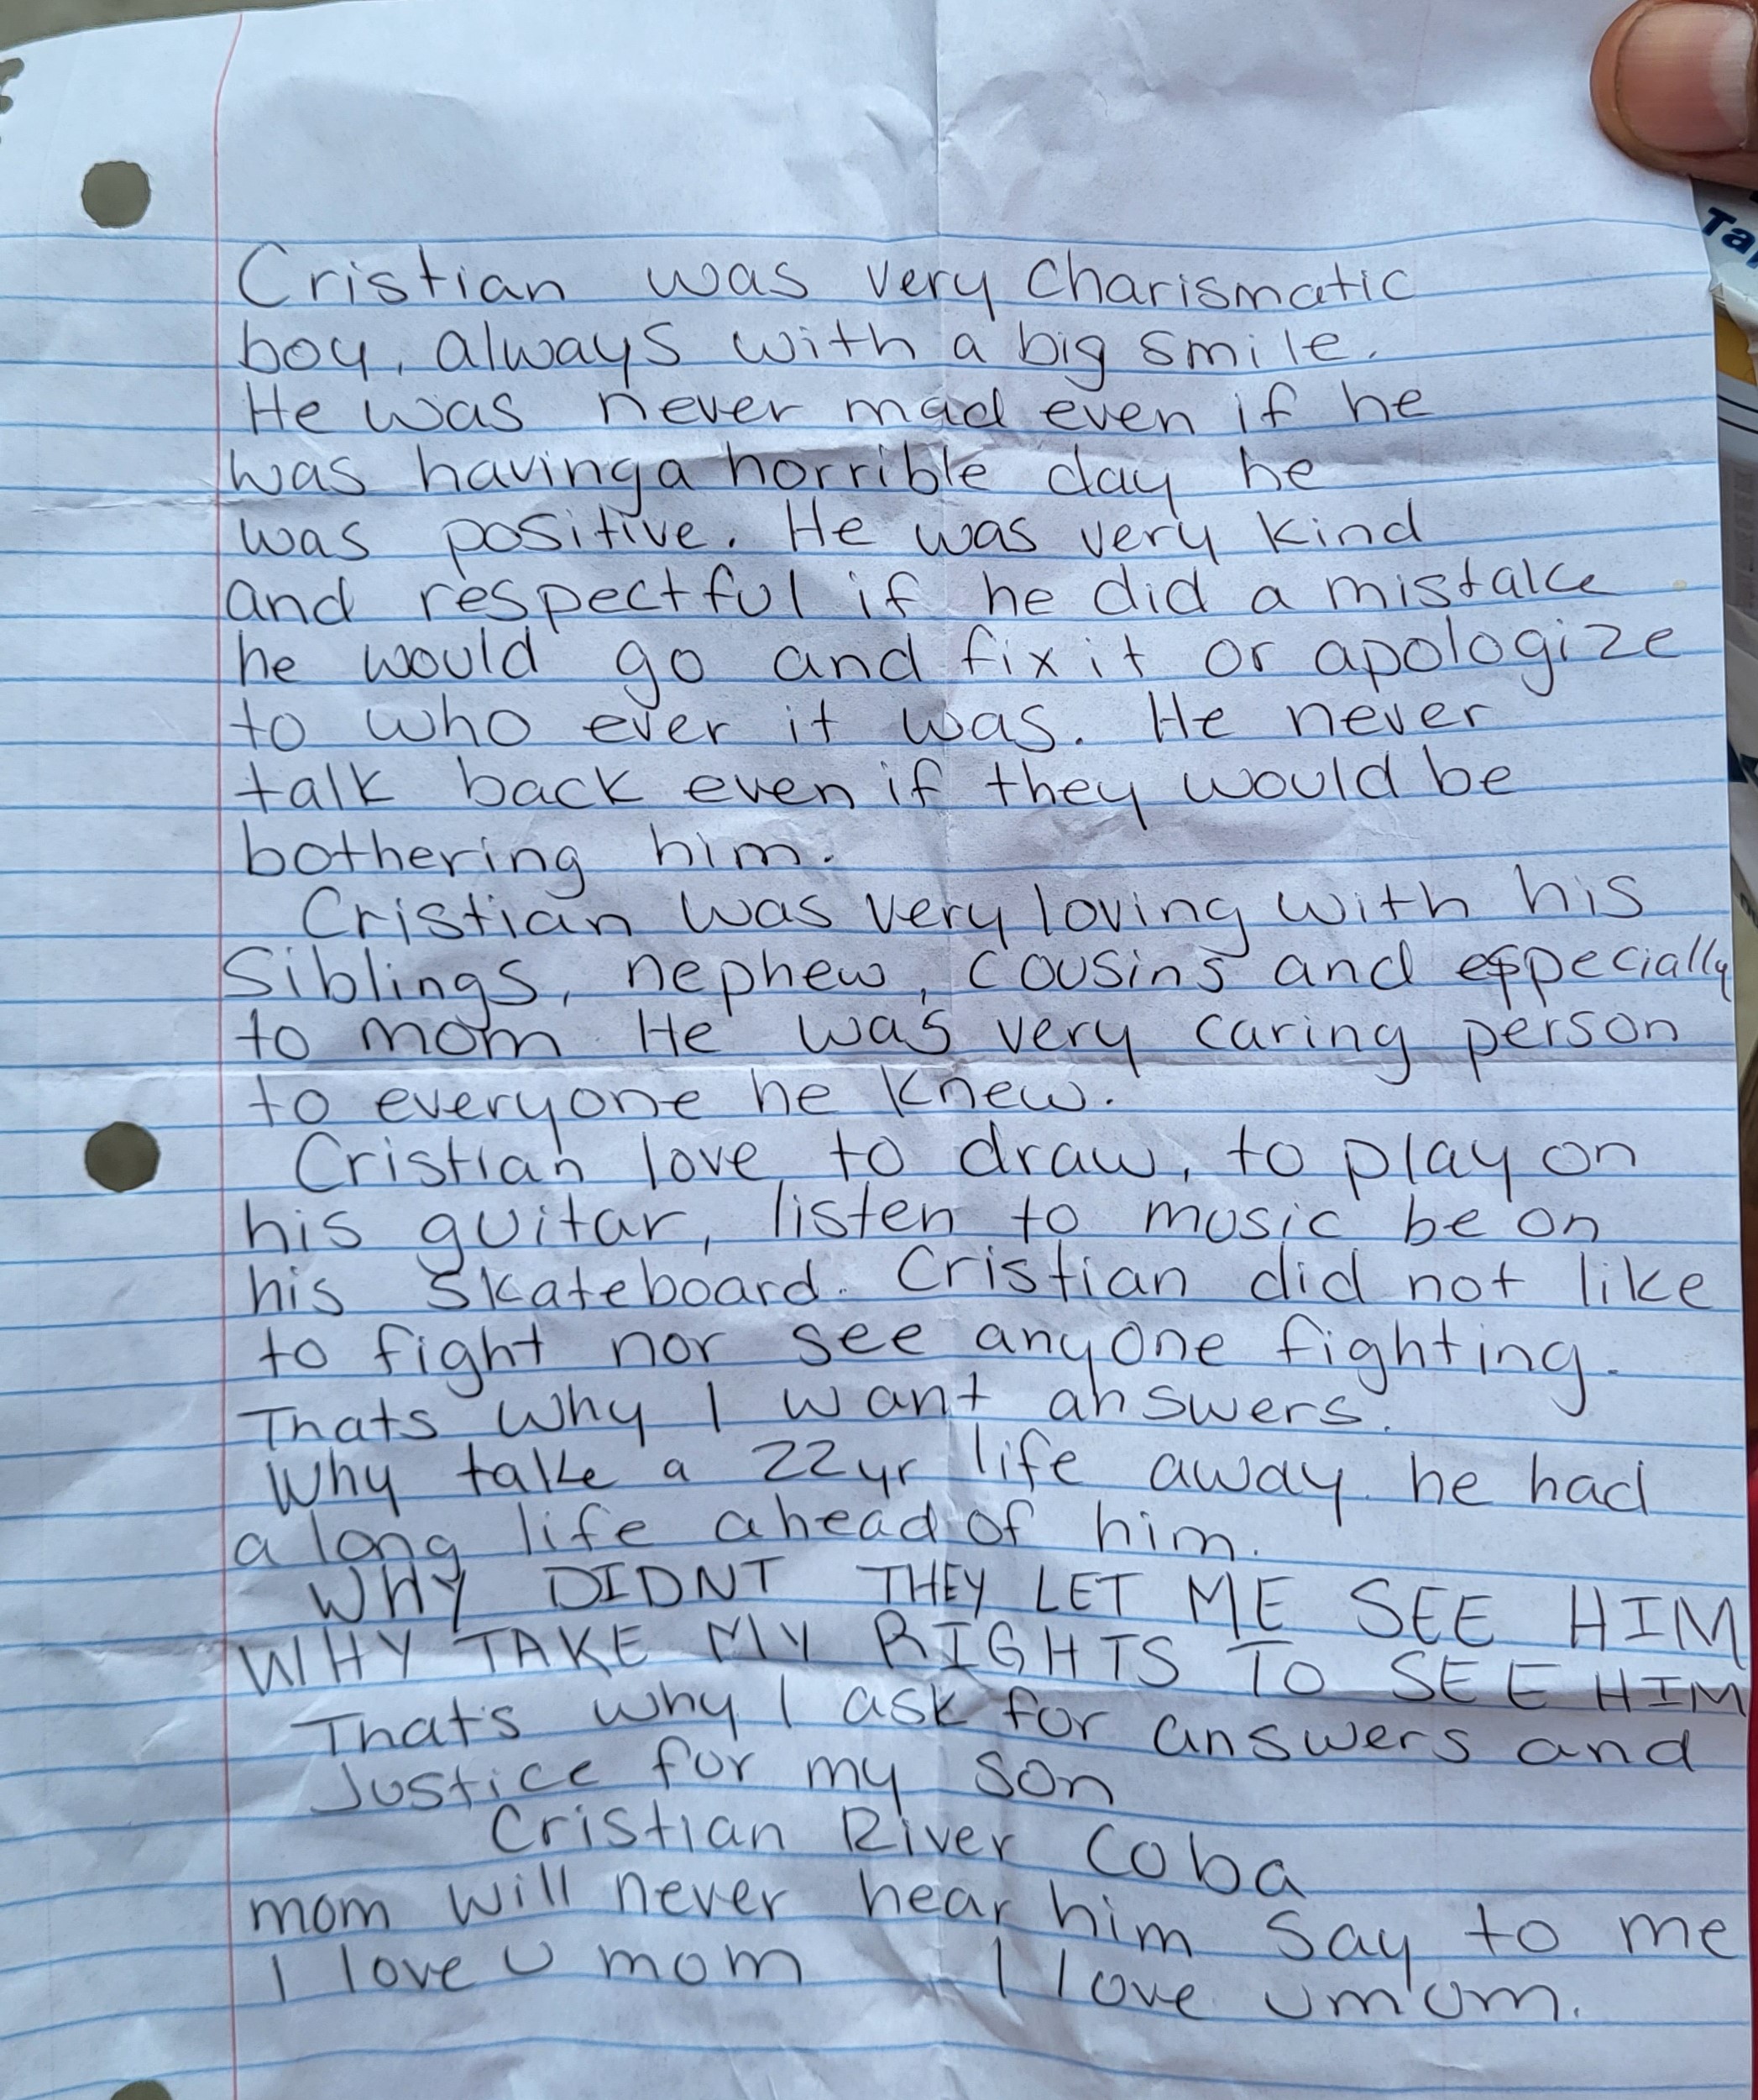 Cristian was very charismatic
boy, always with a big smile.
He was never mad even if he
was having a horrible day he
was positive. He was very kind
and respectful if he did a mistake
he would go and fix it or apologize
to who ever it was. He never
talk back even if they would be
bothering him.
Cristian was very loving with his
Siblings, nephew, cousins and especially
to mom He was very caring person
to everyone he knew.
Cristian love to draw, to play on
his guitar, listen to music be on
his skateboard. Cristian did not like
to fight nor see anyone fighting.
Thats why I want answers.
Why take a 22yr life away he had
a long life ahead of him.
WHY DIDNT THEY LET ME SEE HIM
WHY TAKE MY RIGHTS TO SEE HIM
That's why I ask for answers and
Justice for my son
Cristian River Coba
mom will never hear him say to me
I love U mom I love u mom.